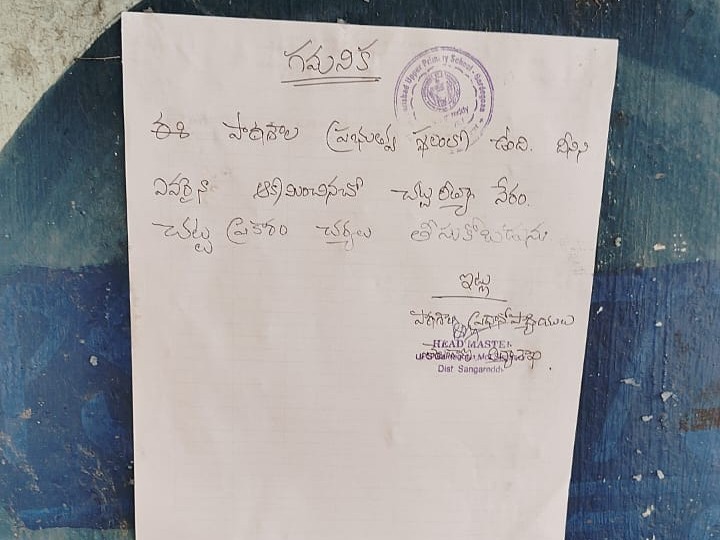 గమనిక
Upper Primary School
ఈ పాఠశాల ప్రభుత్వ స్థలంలో ఉంది. దీనిని
ఎవరైనా ఆక్రమించినచో చట్ట రీత్యా నేరం.
చట్ట ప్రకారం చర్యలు తీసుకోబడును.
ఇట్లు
పాఠశాల ప్రధానోపాధ్యాయులు
HEAD MASTER
Dist Sangareddy